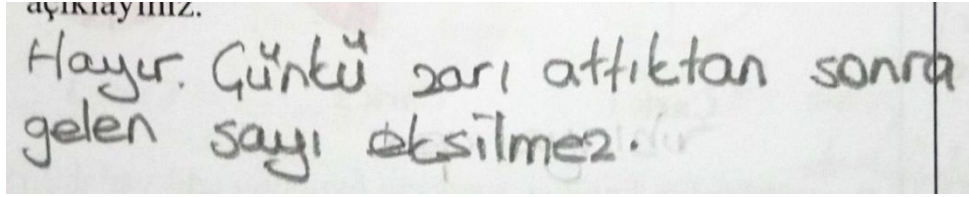 açıklayınız.
Hayır. Çünkü zarı attıktan sonra
gelen sayı eksilmez.